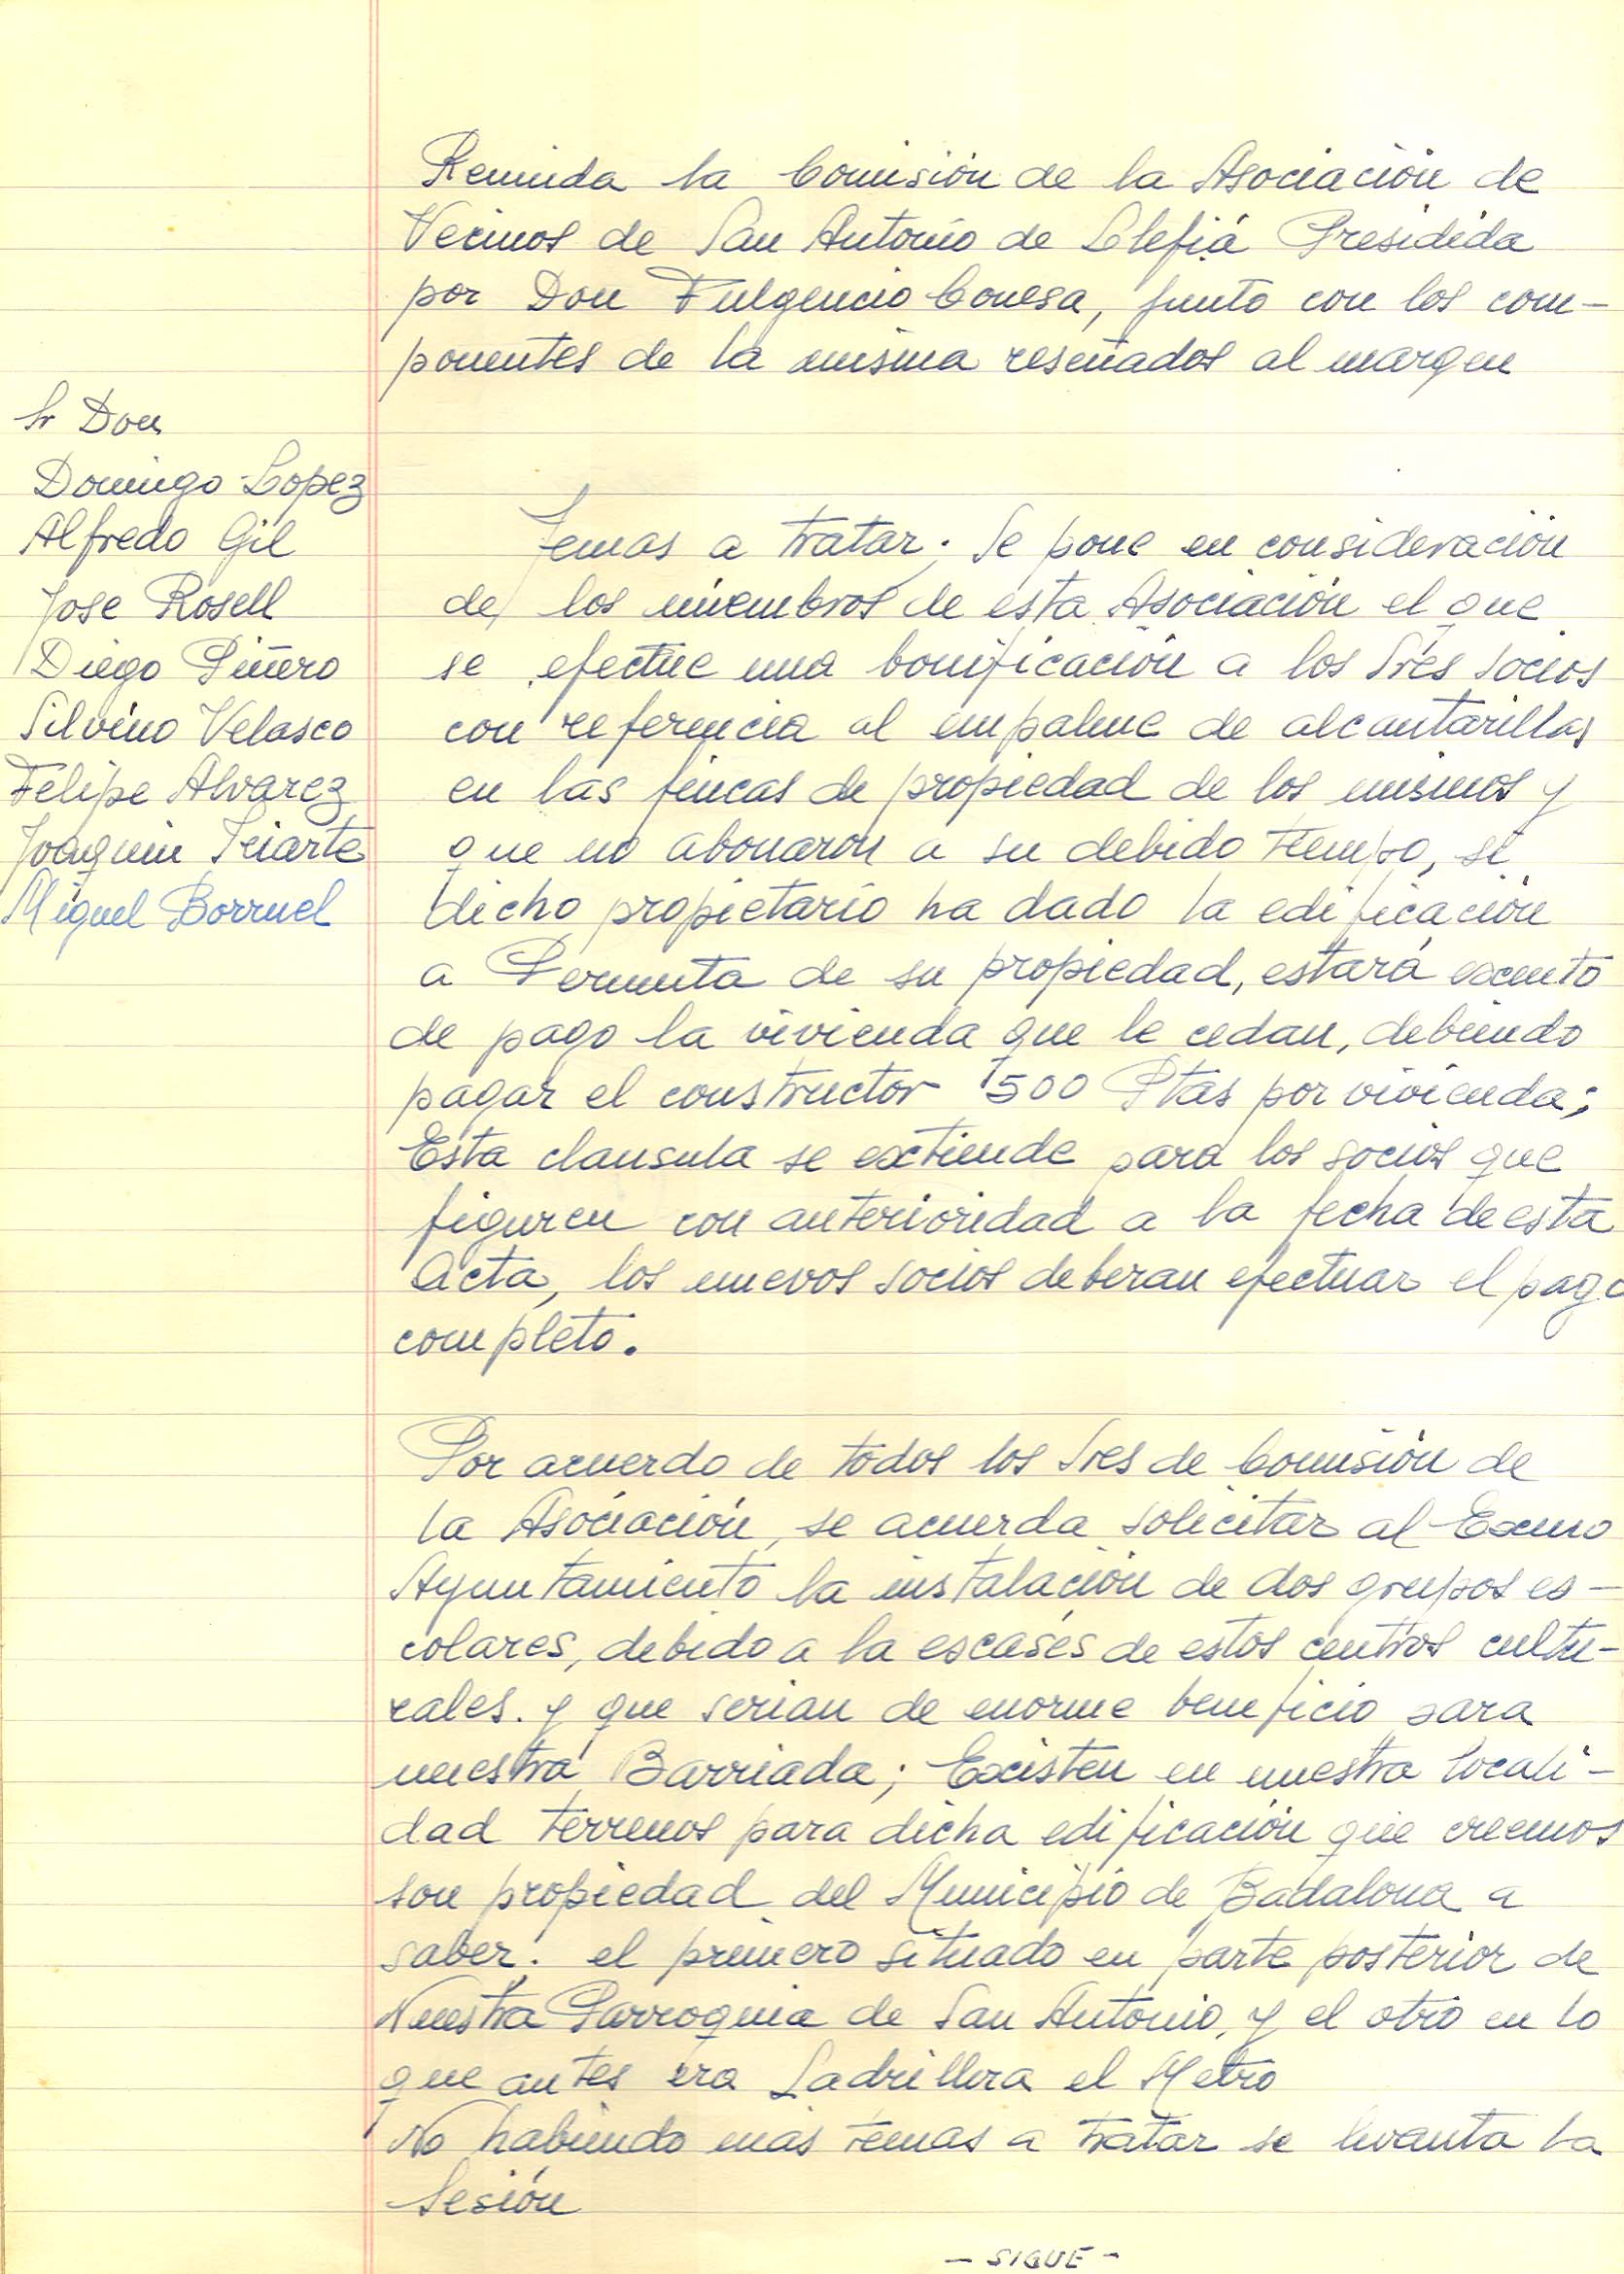 Reunida la Comisión de la Asociación de
Vecinos de San Antonio de Llefiá Presidida
por Don Fulgencio Conesa, junto con los com-
ponentes de la misma reseñados al margen
Sr Don
Domingo Lopez
Alfredo Gil
Jose Rosell
Diego Piñero
Silvino Velasco
Felipe Alvarez
Joaquin Iriarte
Miguel Borruel
Temas a tratar. Se pone en consideración
de los miembros de esta Asociación el que
se efectue una bonificación a los Sres socios
con referencia al empalme de alcantarillas
en las fincas de propiedad de los mismos y
que no abonaron a su debido tiempo, si
dicho propietario ha dado la edificación
a Permuta de su propiedad, estará exento
de pago la vivienda que le cedan, debiendo
pagar el constructor 1500 Ptas por vivienda;
Esta clausula se extiende para los socios que
figuren con anterioridad a la fecha de esta
Acta, los nuevos socios deberan efectuar el pago
completo.
Por acuerdo de todos los Sres de Comisión de
la Asociación, se acuerda solicitar al Exmo
Ayuntamiento la instalación de dos grupos es-
colares, debido a la escasés de estos centros cultu-
rales. y que serian de enorme beneficio para
nuestra Barriada; Existen en nuestra locali-
dad terrenos para dicha edificación que creemos
son propiedad del Municipio de Badalona a
saber. el primero situado en parte posterior de
Nuestra Parroquia de San Antonio, y el otro en lo
que antes era Ladrillera el Metro
No habiendo más temas a tratar se levanta la
Sesión
- SIGUE -